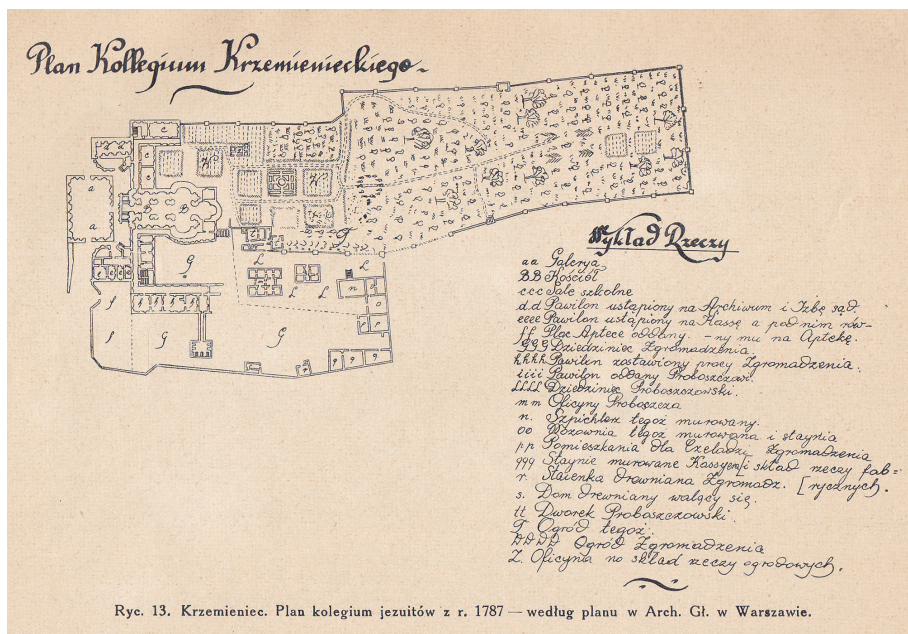 Plan Kollegium Krzemienieckiego
Wykład Rzeczy
aa Galerya
BB Kościół
ccc Sale szkolne
d.d Pawilon ustąpiony na Archiwum i Izbę sąd.
eeee Pawilon ustąpiony na Kassę a pod nim rów-
ff Plac Aptece oddany. -ny mu na Aptekę.
GGG Dziedziniec Zgromadzenia.
hhhh Pawilon zostawiony pracy Zgromadzenia.
iiii Pawilon oddany Proboszczowi.
LLLL Dziedziniec Proboszczowski.
mm Oficyny Proboszcza
n. Szpichlerz tegoż murowany.
oo Wozownia tegoż murowana i staynia
pp Pomieszkania dla Czeladzi Zgromadzenia
qqq Staynie murowane Kassyem i skład rzeczy fab=
r. Staienka drewniana Zgromadz. [rycznych.
s. Dom drewniany walący się.
tt Dworek Proboszczowski.
Ogród tegoż.
Ogród Zgromadzenia
Z. Oficyna no skład rzeczy ogrodowych.
Ryc. 13. Krzemieniec. Plan kolegium jezuitów z r. 1787 — według planu w Arch. Gł. w Warszawie.